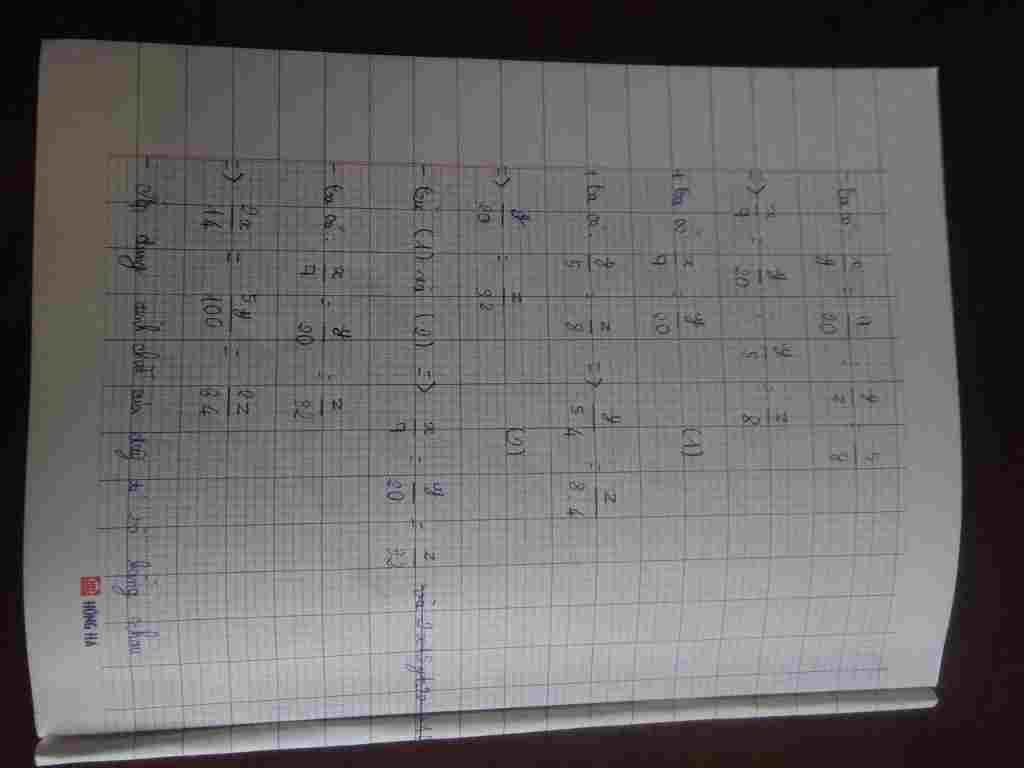 - Ta có: x/y = 7/20 ; y/z = 5/8
=> x/7 = y/20 ; y/5 = z/8
+ Ta có x/7 = y/20 (1)
+ Ta có y/5 = z/8 => y/5.4 = z/8.4
=> y/20 = z/32 (2)
- Từ (1) và (2) => x/7 = y/20 = z/32 và 2x+5y+2z
- Ta có: x/7 = y/20 = z/32
=> 2x/14 = 5y/100 = 2z/64
- Áp dụng tính chất của dãy tỉ số bằng nhau
HỒNG HÀ